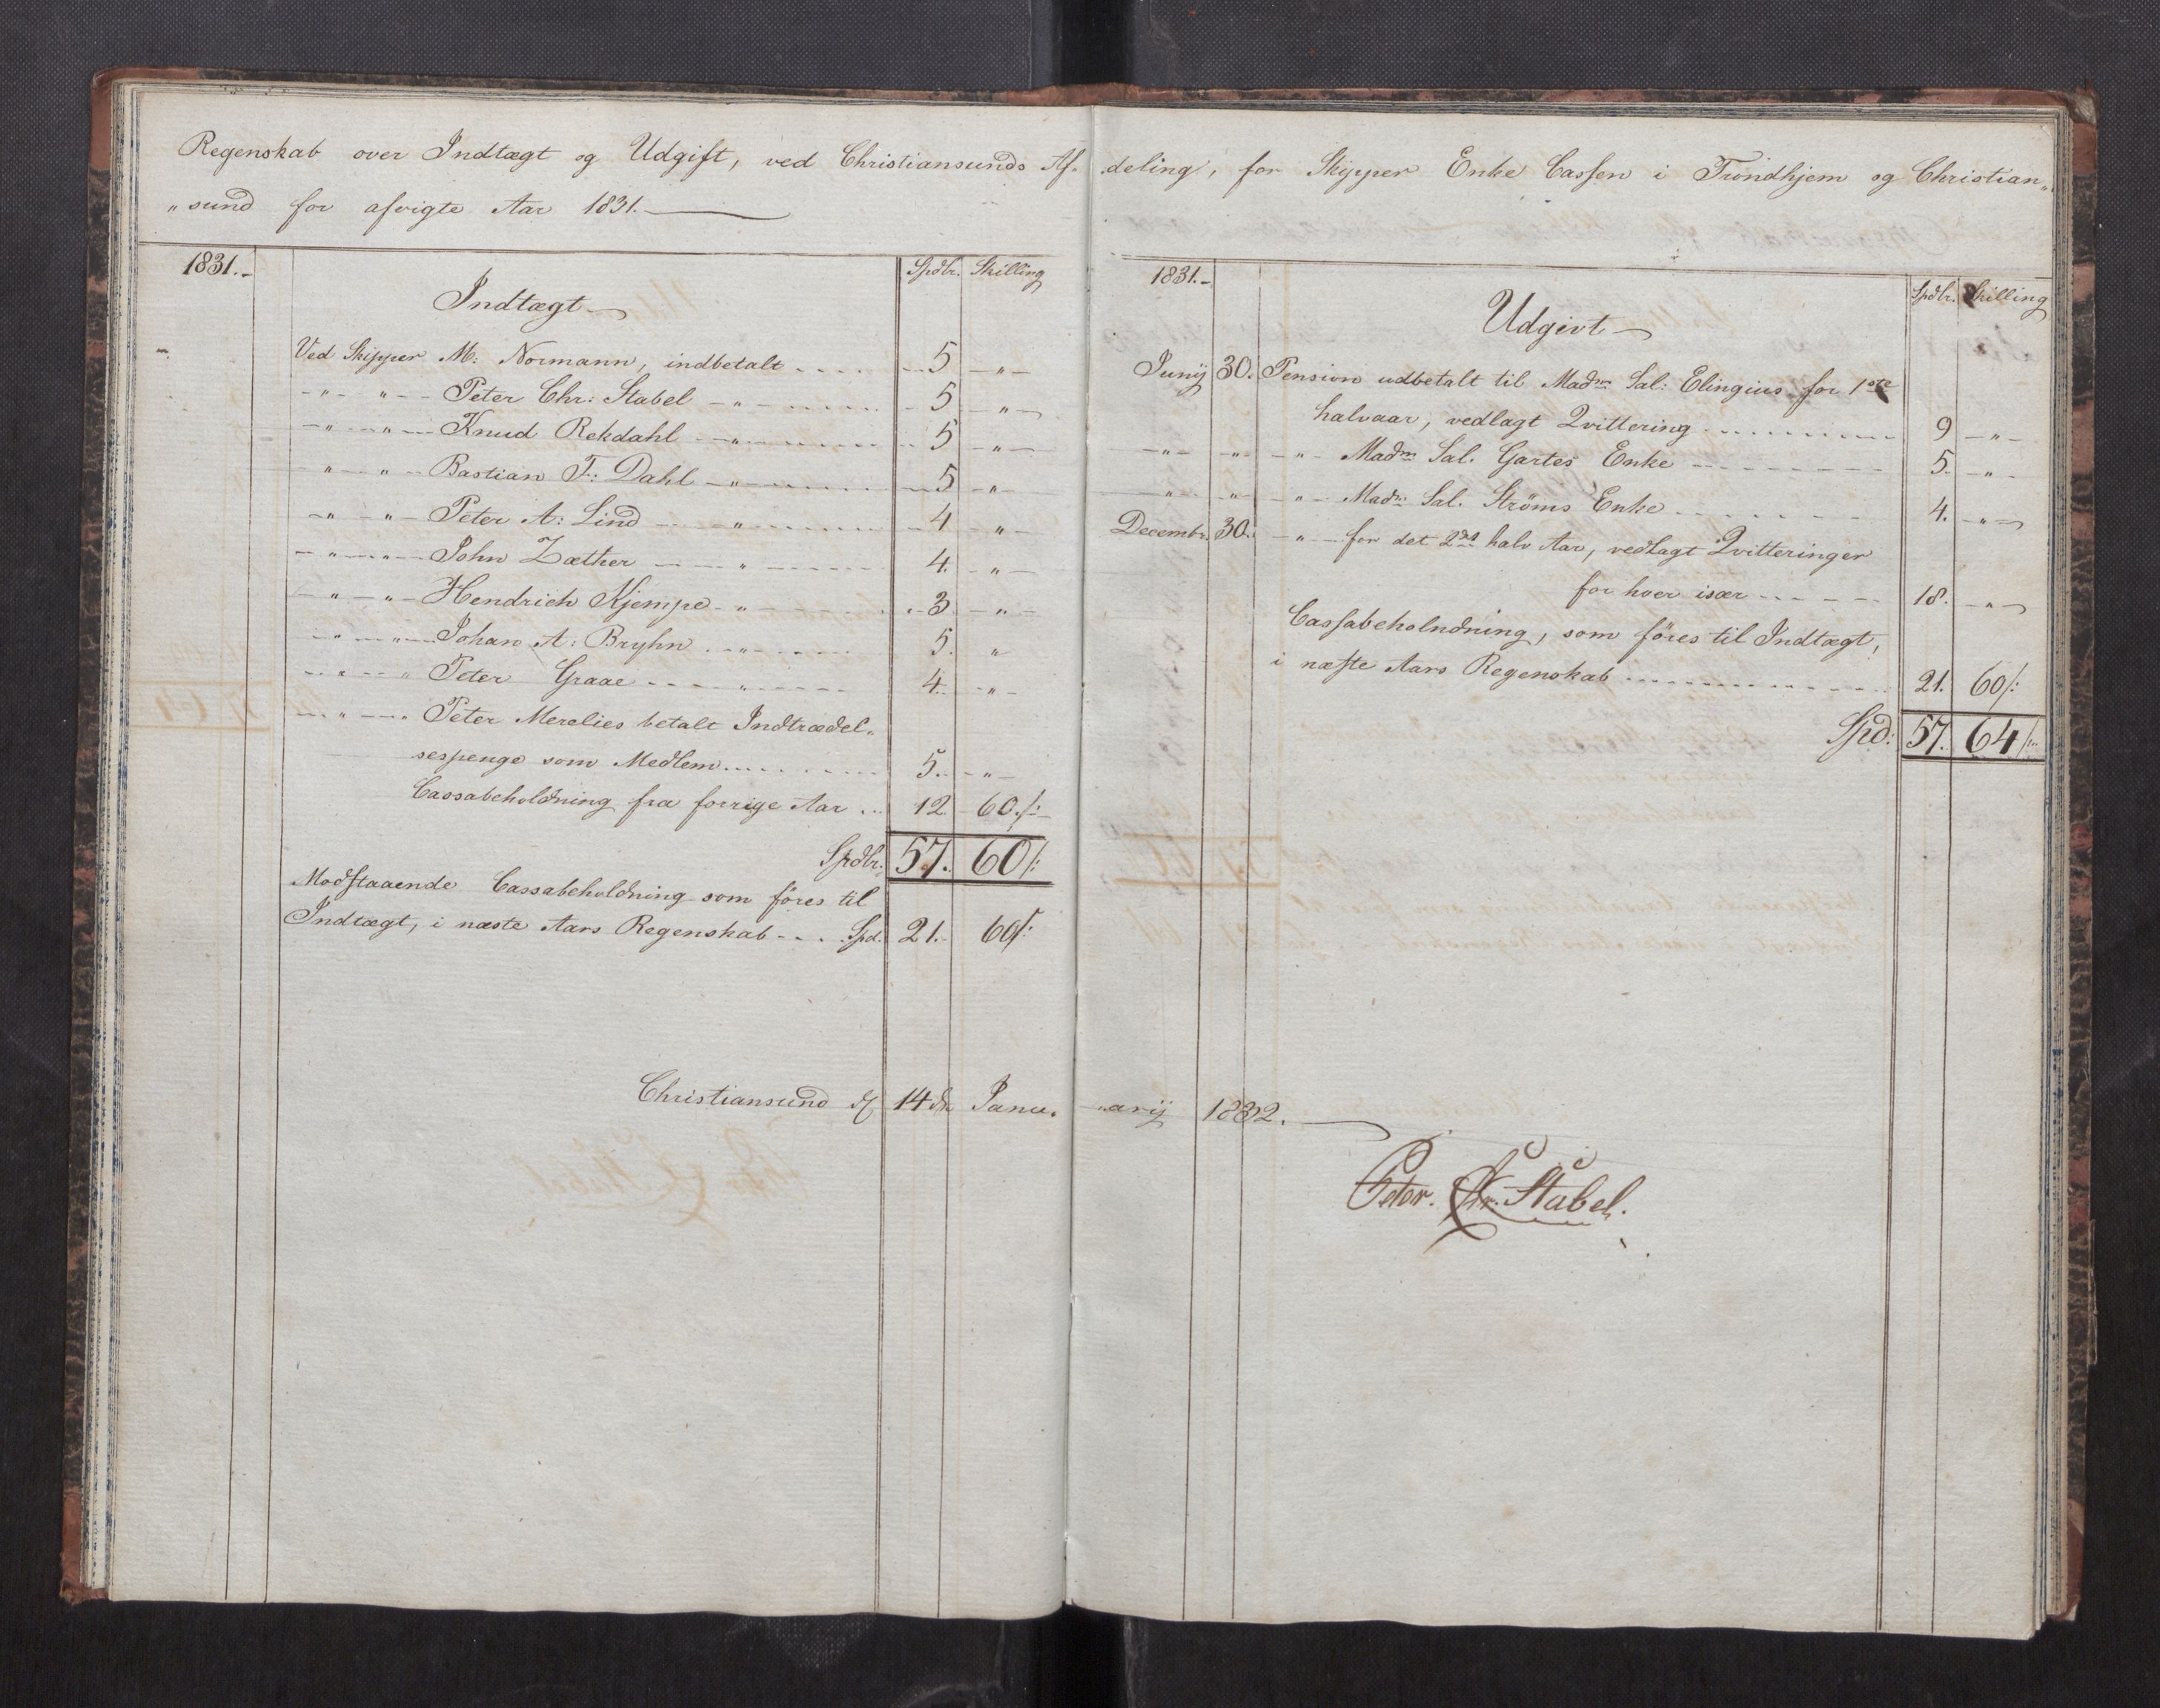 Regenskab over Indtægt og Udgift, ved Christiansunds Af- deling, for Skipper Enke Cassen i Trondhjem og Christian„
„sund for afvigte Aar 1831.
1831.- Spdlr. Skilling
Indtægt
Ved Skipper M: Normann, indbetalt .... 5 - " -
- " - " - Peter Chr: Stabel - " - .... 5 - " -
- " - " - Knud Rekdahl - " - .... 5 - " -
- " - " - Bastian F: Dahl - " - .... 5 - " -
- " - " - Peter A: Lind - " - .... 4 - " -
- " - " - John Zæther - " - .... 4. - " -
- " - " - Hendrich Kjempe - " - .... 3 - " -
- " - " - Johan A: Bryhn - " - .... 5. "
- " - " - Peter Graae - " - .... 4. - " -
- " - " Peter Merelies betalt Indtrædel„
sespenge som Medlem .... 5. - " -
Cassabeholdning fra forrige Aar ... 12. 60./:
Spdlr. 57. 60/:
Modstaaende Cassabeholdning som föres til
Indtægt, i næste Aars Regenskab - . . Spd. 21. 60/:
1831.- Spdlr. Skilling
Udgivt
Junij 30. Pension udbetalt til Madm Sal: Elingius for 1ste
halvaar, vedlagt Qvittering .... 9 - " -
- " - - " - - " - Madm Sal. Gartes Enke .... 5. - " -
- " - - " - - " - Madm Sal. Ströms Enke .... 4. - " -
Decembr. 30. - " - for det 2det halv Aar, vedlagt Qvitteringer
for hver især .... 18. - " -
Cassabeholndning, som föres til Indtægt,
i næste Aars Regenskab .... 21. 60/:
Spd: 57. 64/:
Christiansund d 14de Janu„ „arij 1832.
Peter. Chr. Stabel.